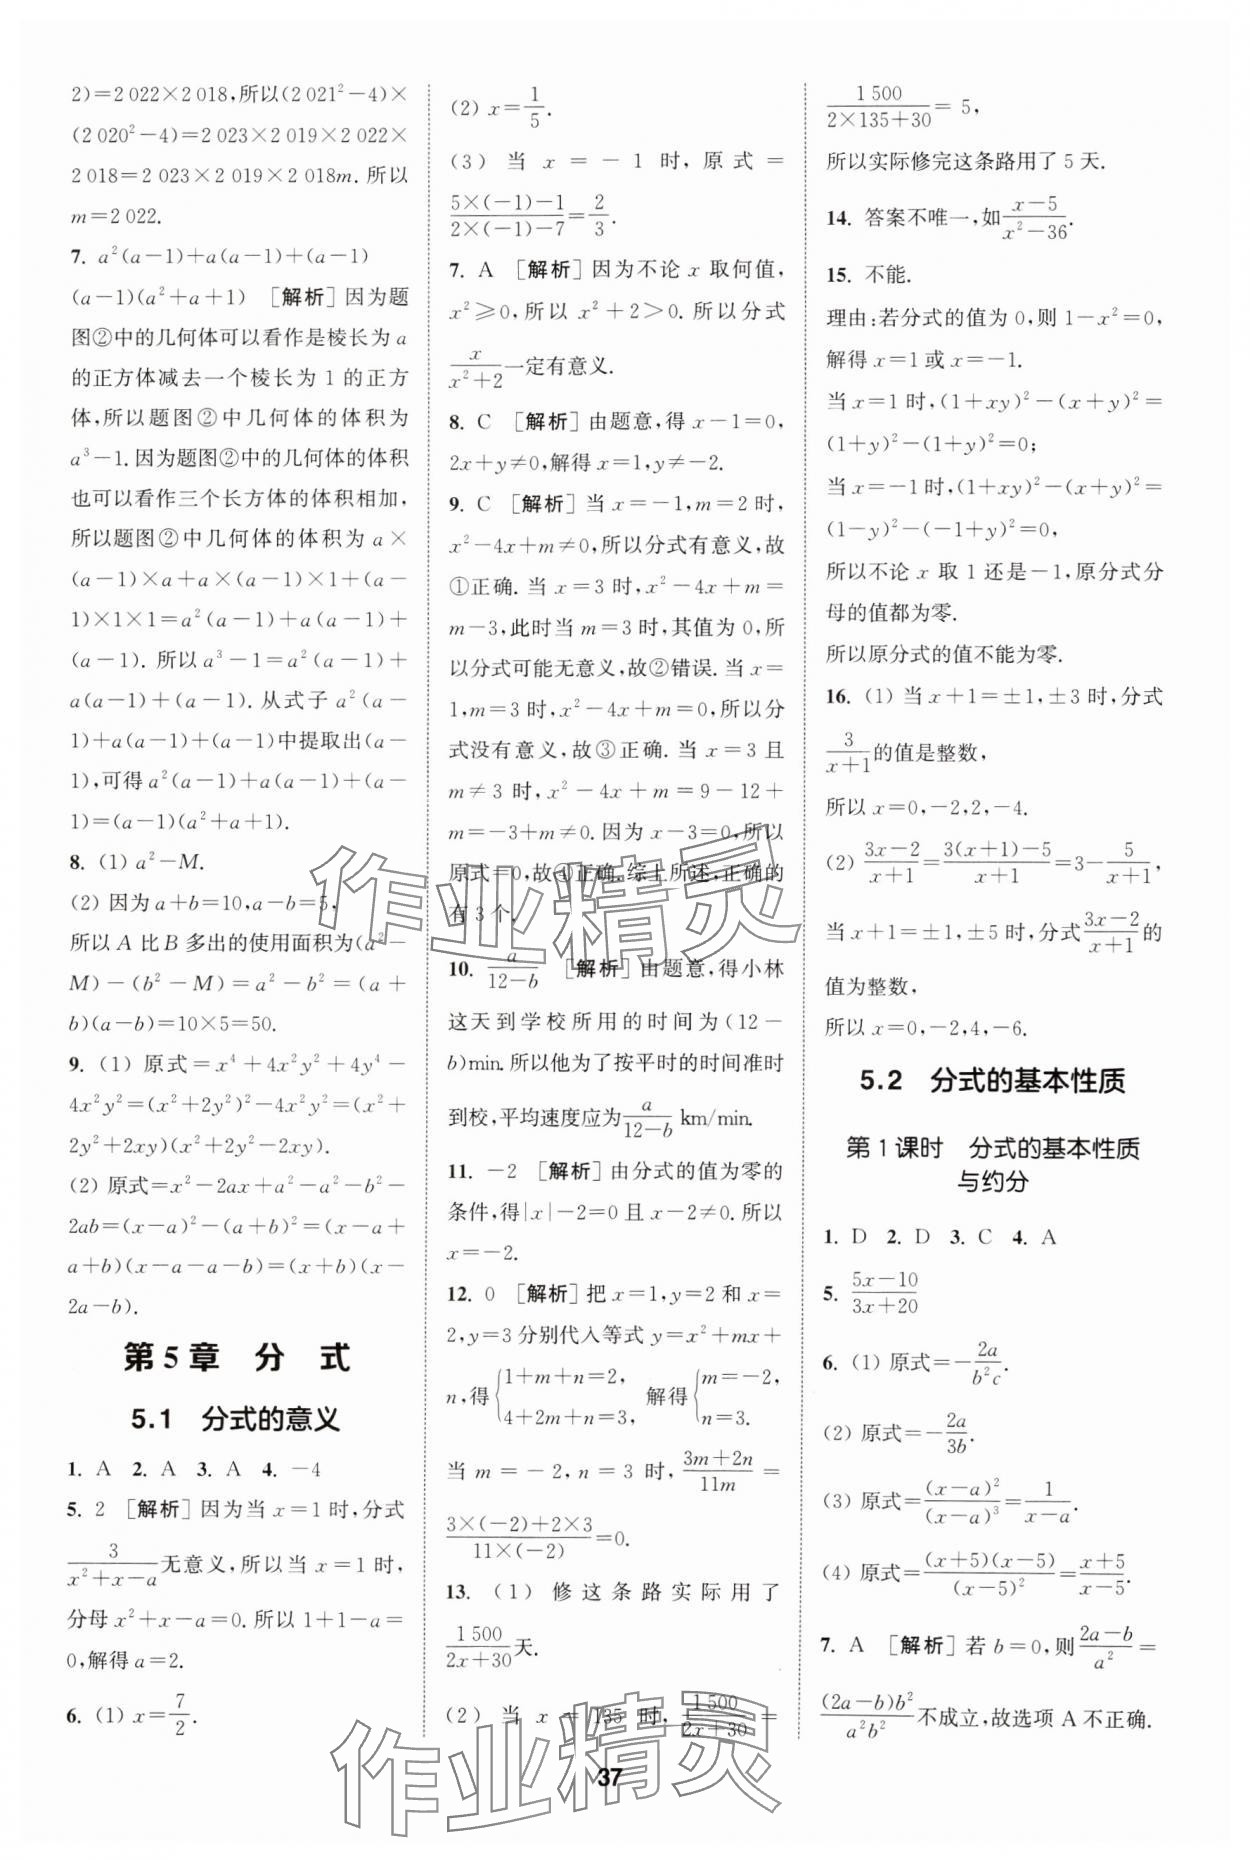 2)=2 022×2 018,所以(2 021²-4)×
(2 020²-4)=2 023×2 019×2 022×
2 018=2 023×2 019×2 018m. 所以
m=2 022.
7. a²(a-1)+a(a-1)+(a-1)
(a-1)(a²+a+1) [解析]因为题
图②中的几何体可以看作是棱长为 a
的正方体减去一个棱长为 1 的正方
体,所以题图②中几何体的体积为
a³-1. 因为题图②中的几何体的体积
也可以看作三个长方体的体积相加,
所以题图②中几何体的体积为 a×
(a-1)×a+a×(a-1)×1+(a-
1)×1×1=a²(a-1)+a(a-1)+
(a-1). 所以 a³-1=a²(a-1)+
a(a-1)+(a-1). 从式子 a²(a-
1)+a(a-1)+(a-1)中提取出(a-
1),可得 a²(a-1)+a(a-1)+(a-
1)=(a-1)(a²+a+1).
8. (1) a²-M.
(2) 因为 a+b=10,a-b=5,
所以 A 比 B 多出的使用面积为(a²-
M)-(b²-M)=a²-b²=(a+
b)(a-b)=10×5=50.
9. (1) 原式=x⁴+4x²y²+4y⁴-
4x²y²=(x²+2y²)²-4x²y²=(x²+
2y²+2xy)(x²+2y²-2xy).
(2) 原式=x²-2ax+a²-a²-b²-
2ab=(x-a)²-(a+b)²=(x-a+
a+b)(x-a-a-b)=(x+b)(x-
2a-b).
第 5 章 分 式
5.1 分式的意义
1. A 2. A 3. A 4. -4
5. 2 [解析]因为当 x=1 时,分式
3/(x²+x-a)无意义,所以当 x=1 时,
分母 x²+x-a=0. 所以 1+1-a=
0,解得 a=2.
6. (1) x=7/2.
(2) x=1/5.
(3) 当 x=-1 时,原式=
(5×(-1)-1)/(2×(-1)-7)=2/3.
7. A [解析]因为不论 x 取何值,
x²≥0,所以 x²+2>0. 所以分式
x/(x²+2)一定有意义.
8. C [解析]由题意,得 x-1=0,
2x+y≠0,解得 x=1,y≠-2.
9. C [解析]当 x=-1,m=2 时,
x²-4x+m≠0,所以分式有意义,故
①正确. 当 x=3 时,x²-4x+m=
m-3,此时当 m=3 时,其值为 0,所
以分式可能无意义,故②错误. 当 x=
1,m=3 时,x²-4x+m=0,所以分
式没有意义,故③正确. 当 x=3 且
m≠3 时,x²-4x+m=9-12+
m=-3+m≠0. 因为 x-3=0,所以
原式=0,故④正确. 综上所述,正确的
有 3 个.
10. a/(12-b) [解析]由题意,得小林
这天到学校所用的时间为(12-
b)min. 所以他为了按平时的时间准时
到校,平均速度应为a/(12-b) km/min.
11. -2 [解析]由分式的值为零的
条件,得|x|-2=0 且 x-2≠0. 所以
x=-2.
12. 0 [解析]把 x=1,y=2 和 x=
2,y=3 分别代入等式 y=x²+mx+
n,得{1+m+n=2, 4+2m+n=3, 解得{m=-2, n=3.
当 m=-2,n=3 时,(3m+2n)/(11m)=
(3×(-2)+2×3)/(11×(-2))=0.
13. (1) 修这条路实际用了
1 500/(2x+30)天.
(2) 当 x=135 时,1 500/(2x+30)=
1 500/(2×135+30)=5,
所以实际修完这条路用了 5 天.
14. 答案不唯一,如(x-5)/(x²-36).
15. 不能.
理由:若分式的值为 0,则 1-x²=0,
解得 x=1 或 x=-1.
当 x=1 时,(1+xy)²-(x+y)²=
(1+y)²-(1+y)²=0;
当 x=-1 时,(1+xy)²-(x+y)²=
(1-y)²-(-1+y)²=0,
所以不论 x 取 1 还是-1,原分式分
母的值都为零.
所以原分式的值不能为零.
16. (1) 当 x+1=±1,±3 时,分式
3/(x+1)的值是整数,
所以 x=0,-2,2,-4.
(2) (3x-2)/(x+1)=(3(x+1)-5)/(x+1)=3-5/(x+1),
当 x+1=±1,±5 时,分式(3x-2)/(x+1)的
值为整数,
所以 x=0,-2,4,-6.
5.2 分式的基本性质
第 1 课时 分式的基本性质
与约分
1. D 2. D 3. C 4. A
5. (5x-10)/(3x+20)
6. (1) 原式=-2a/(b²c).
(2) 原式=-2a/(3b).
(3) 原式=(x-a)²/(x-a)³=1/(x-a).
(4) 原式=(x+5)(x-5)/(x-5)²=(x+5)/(x-5).
7. A [解析]若 b=0,则(2a-b)/a²=
(2a-b)b²/(a²b²)不成立,故选项 A 不正确.
37
作业精灵
作业精灵